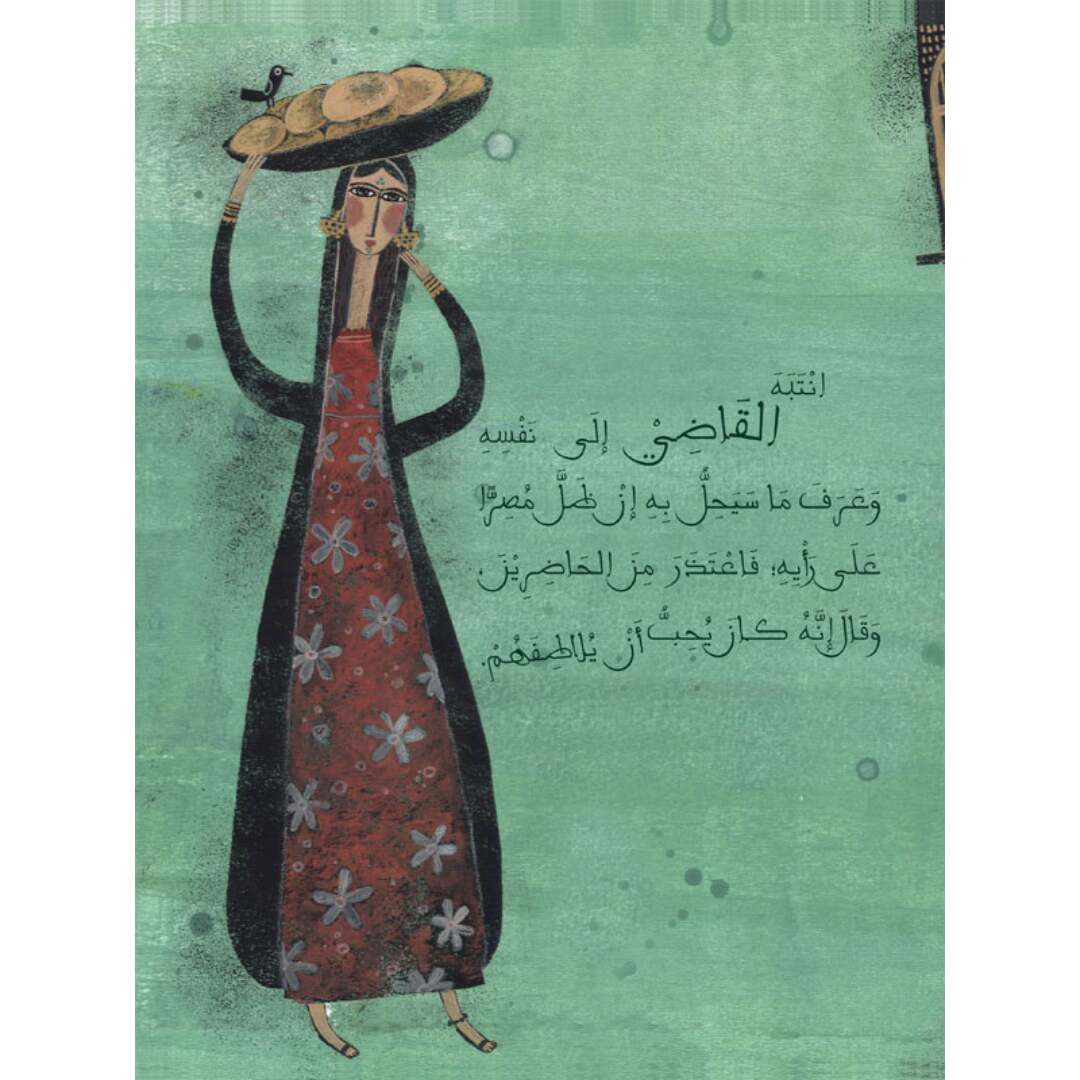 انْتَبَهَ
القَاضِيْ إِلَى نَفْسِهِ
وَعَرَفَ مَا سَيَحِلُّ بِهِ إِنْ ظَلَّ مُصِرًّا
عَلَى رَأْيِهِ؛ فَاعْتَذَرَ مِنَ الحَاضِرِيْنَ،
وَقَالَ إِنَّهُ كَانَ يُحِبُّ أَنْ يُلَاطِفَهُمْ.